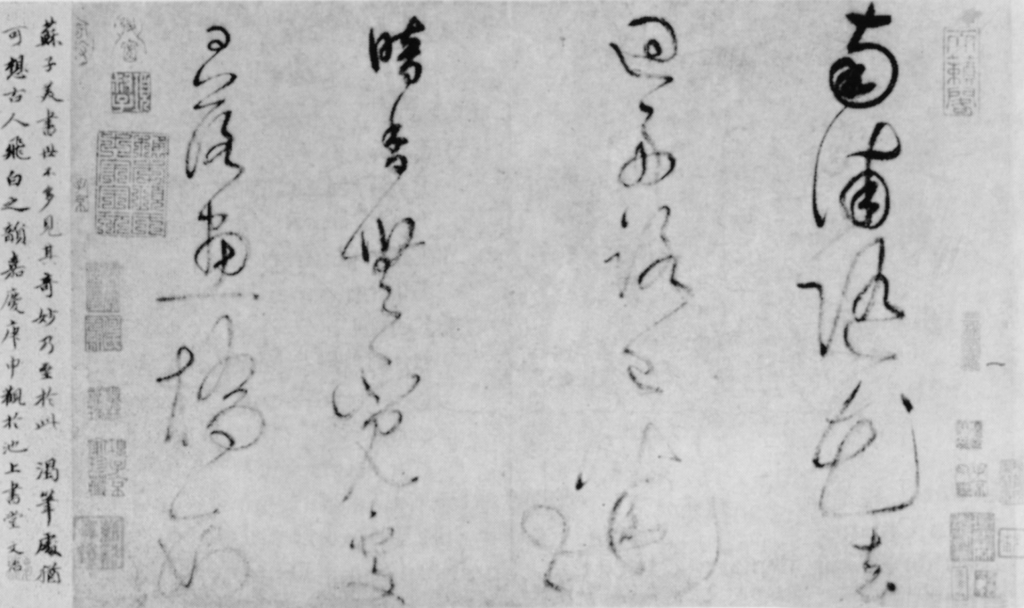 天籟閣
南浦隨花去
迴舟路已迷
暗香無覓處
日落畫橋西
蘇子美書世不多見其奇妙乃至於此 渴筆處猶
可想古人飛白之韻嘉慶庚申觀於池上書堂文治